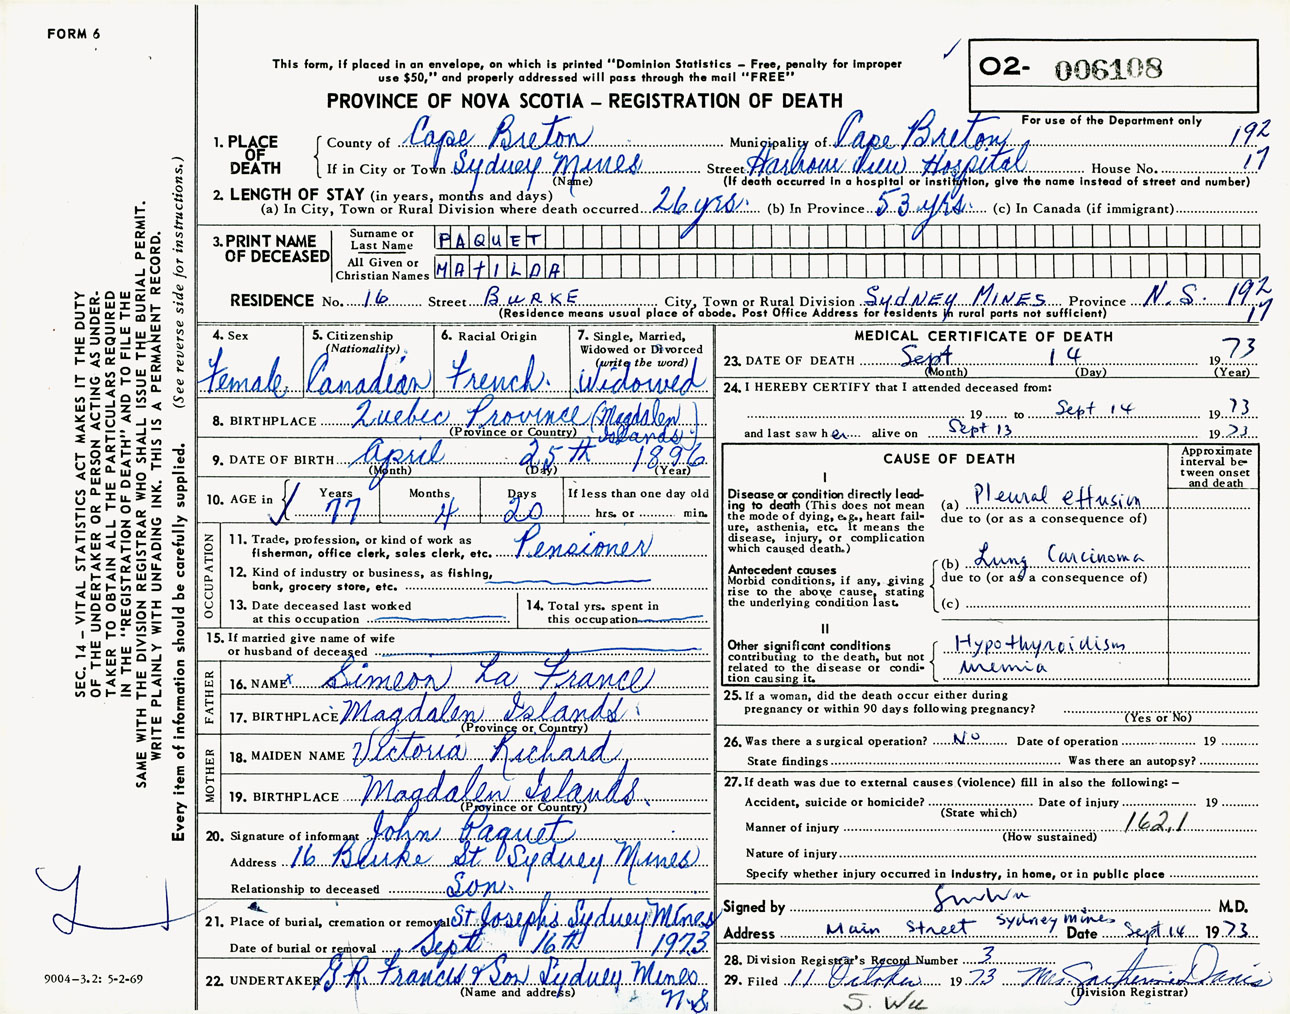 FORM 6
This form, if placed in an envelope, on which is printed "Dominion Statistics – Free, penalty for improper
use $50," and properly addressed will pass through the mail "FREE"
PROVINCE OF NOVA SCOTIA – REGISTRATION OF DEATH
O2- 006108
For use of the Department only
1. PLACE OF DEATH
County of Cape Breton Municipality of Cape Breton 192
If in City or Town Sydney Mines Street Harbour View Hospital House No. 17
(Name) (If death occurred in a hospital or institution, give the name instead of street and number)
2. LENGTH OF STAY (in years, months and days)
(a) In City, Town or Rural Division where death occurred 26 yrs. (b) In Province 53 yrs. (c) In Canada (if immigrant)
3. PRINT NAME OF DECEASED
Surname or Last Name PAQUET
All Given or Christian Names MATILDA
RESIDENCE No. 16 Street BURKE City, Town or Rural Division SYDNEY MINES Province N.S. 192
(Residence means usual place of abode. Post Office Address for residents in rural parts not sufficient) 17
4. Sex
Female
5. Citizenship
(Nationality)
Canadian
6. Racial Origin
French.
7. Single, Married,
Widowed or Divorced
(write the word)
Widowed
8. BIRTHPLACE Quebec Province (Magdalen Islands)
(Province or Country)
9. DATE OF BIRTH April 25th 1896
(Month) (Day) (Year)
10. AGE in Years 77 Months 4 Days 20 If less than one day old
hrs. or min.
OCCUPATION
11. Trade, profession, or kind of work as
fisherman, office clerk, sales clerk, etc. Pensioner
12. Kind of industry or business, as fishing,
bank, grocery store, etc.
13. Date deceased last worked
at this occupation
14. Total yrs. spent in
this occupation
15. If married give name of wife
or husband of deceased
FATHER
16. NAME x Simeon La France
17. BIRTHPLACE Magdalen Islands
(Province or Country)
MOTHER
18. MAIDEN NAME Victoria Richard
19. BIRTHPLACE Magdalen Islands.
(Province or Country)
20. Signature of informant John Paquet
Address 16 Burke St Sydney Mines
Relationship to deceased Son.
21. Place of burial, cremation or removal St Josephs Sydney Mines
Date of burial or removal Sept 16th 1973
22. UNDERTAKER G.R. Francis & Son Sydney Mines
(Name and address) N.S.
MEDICAL CERTIFICATE OF DEATH
23. DATE OF DEATH Sept 14 1973
(Month) (Day) (Year)
24. I HEREBY CERTIFY that I attended deceased from:
19 to Sept 14 1973
and last saw her alive on Sept 13 1973
CAUSE OF DEATH
Approximate
interval be-
tween onset
and death
I
Disease or condition directly lead-
ing to death (This does not mean
the mode of dying, e.g., heart fail-
ure, asthenia, etc. It means the
disease, injury, or complication
which caused death.)
(a) Pleural effusion
due to (or as a consequence of)
Antecedent causes
Morbid conditions, if any, giving
rise to the above cause, stating
the underlying condition last.
(b) Lung Carcinoma
due to (or as a consequence of)
(c)
II
Other significant conditions
contributing to the death, but not
related to the disease or condi-
tion causing it.
Hypothyroidism
Anemia
25. If a woman, did the death occur either during
pregnancy or within 90 days following pregnancy?
(Yes or No)
26. Was there a surgical operation? No Date of operation 19
State findings Was there an autopsy?
27. If death was due to external causes (violence) fill in also the following: –
Accident, suicide or homicide? Date of injury 19
(State which)
Manner of injury 162.1
(How sustained)
Nature of injury
Specify whether injury occurred in industry, in home, or in public place
Signed by M.D.
Address Main Street Sydney Mines Date Sept 14 1973
28. Division Registrar's Record Number 3
29. Filed 11 October 1973 Mrs. Davis
(Division Registrar)
S. Wu
SEC. 14 – VITAL STATISTICS ACT MAKES IT THE DUTY
OF THE UNDERTAKER OR PERSON ACTING AS UNDER-
TAKER TO OBTAIN ALL THE PARTICULARS REQUIRED
IN THE "REGISTRATION OF DEATH" AND TO FILE THE
SAME WITH THE DIVISION REGISTRAR WHO SHALL ISSUE THE BURIAL PERMIT.
WRITE PLAINLY WITH UNFADING INK. THIS IS A PERMANENT RECORD.
Every item of information should be carefully supplied. (See reverse side for instructions.)
9004–3.2: 5-2-69